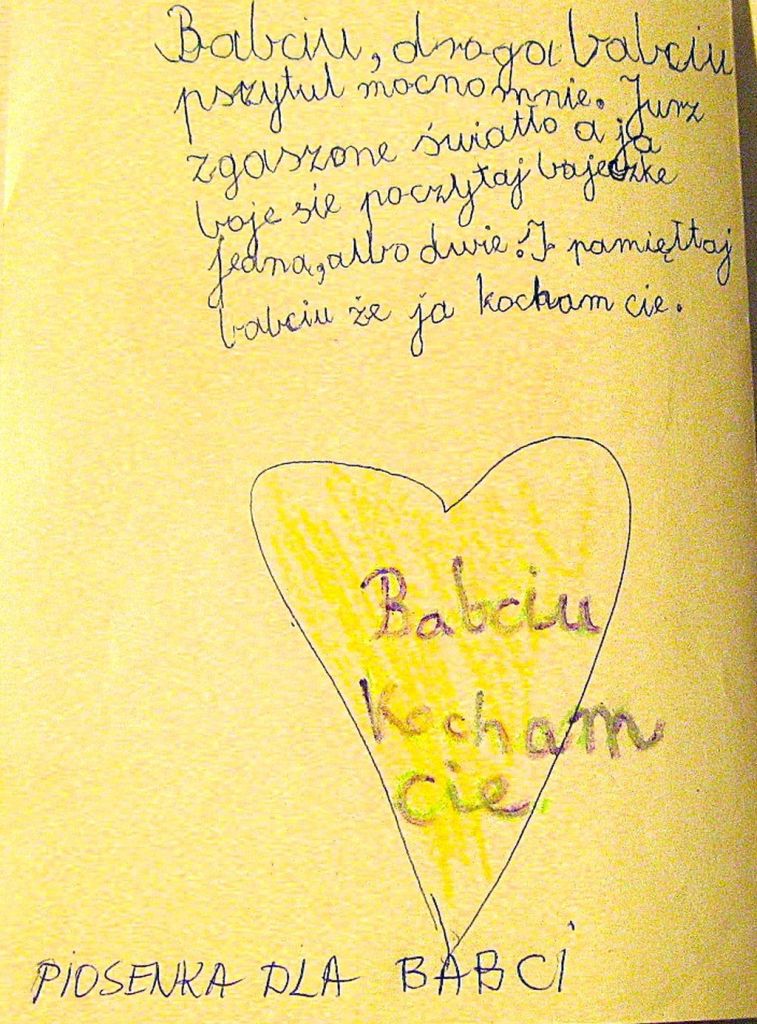 Babciu, droga babciu
pszytul mocno mnie. Jurz
zgaszone światło a ja
boje sie poczytaj bajeczke
jedna, albo dwie. I pamięttaj
babciu że ja kocham cie.
Babciu
kocham
cie.
PIOSENKA DLA BABCI